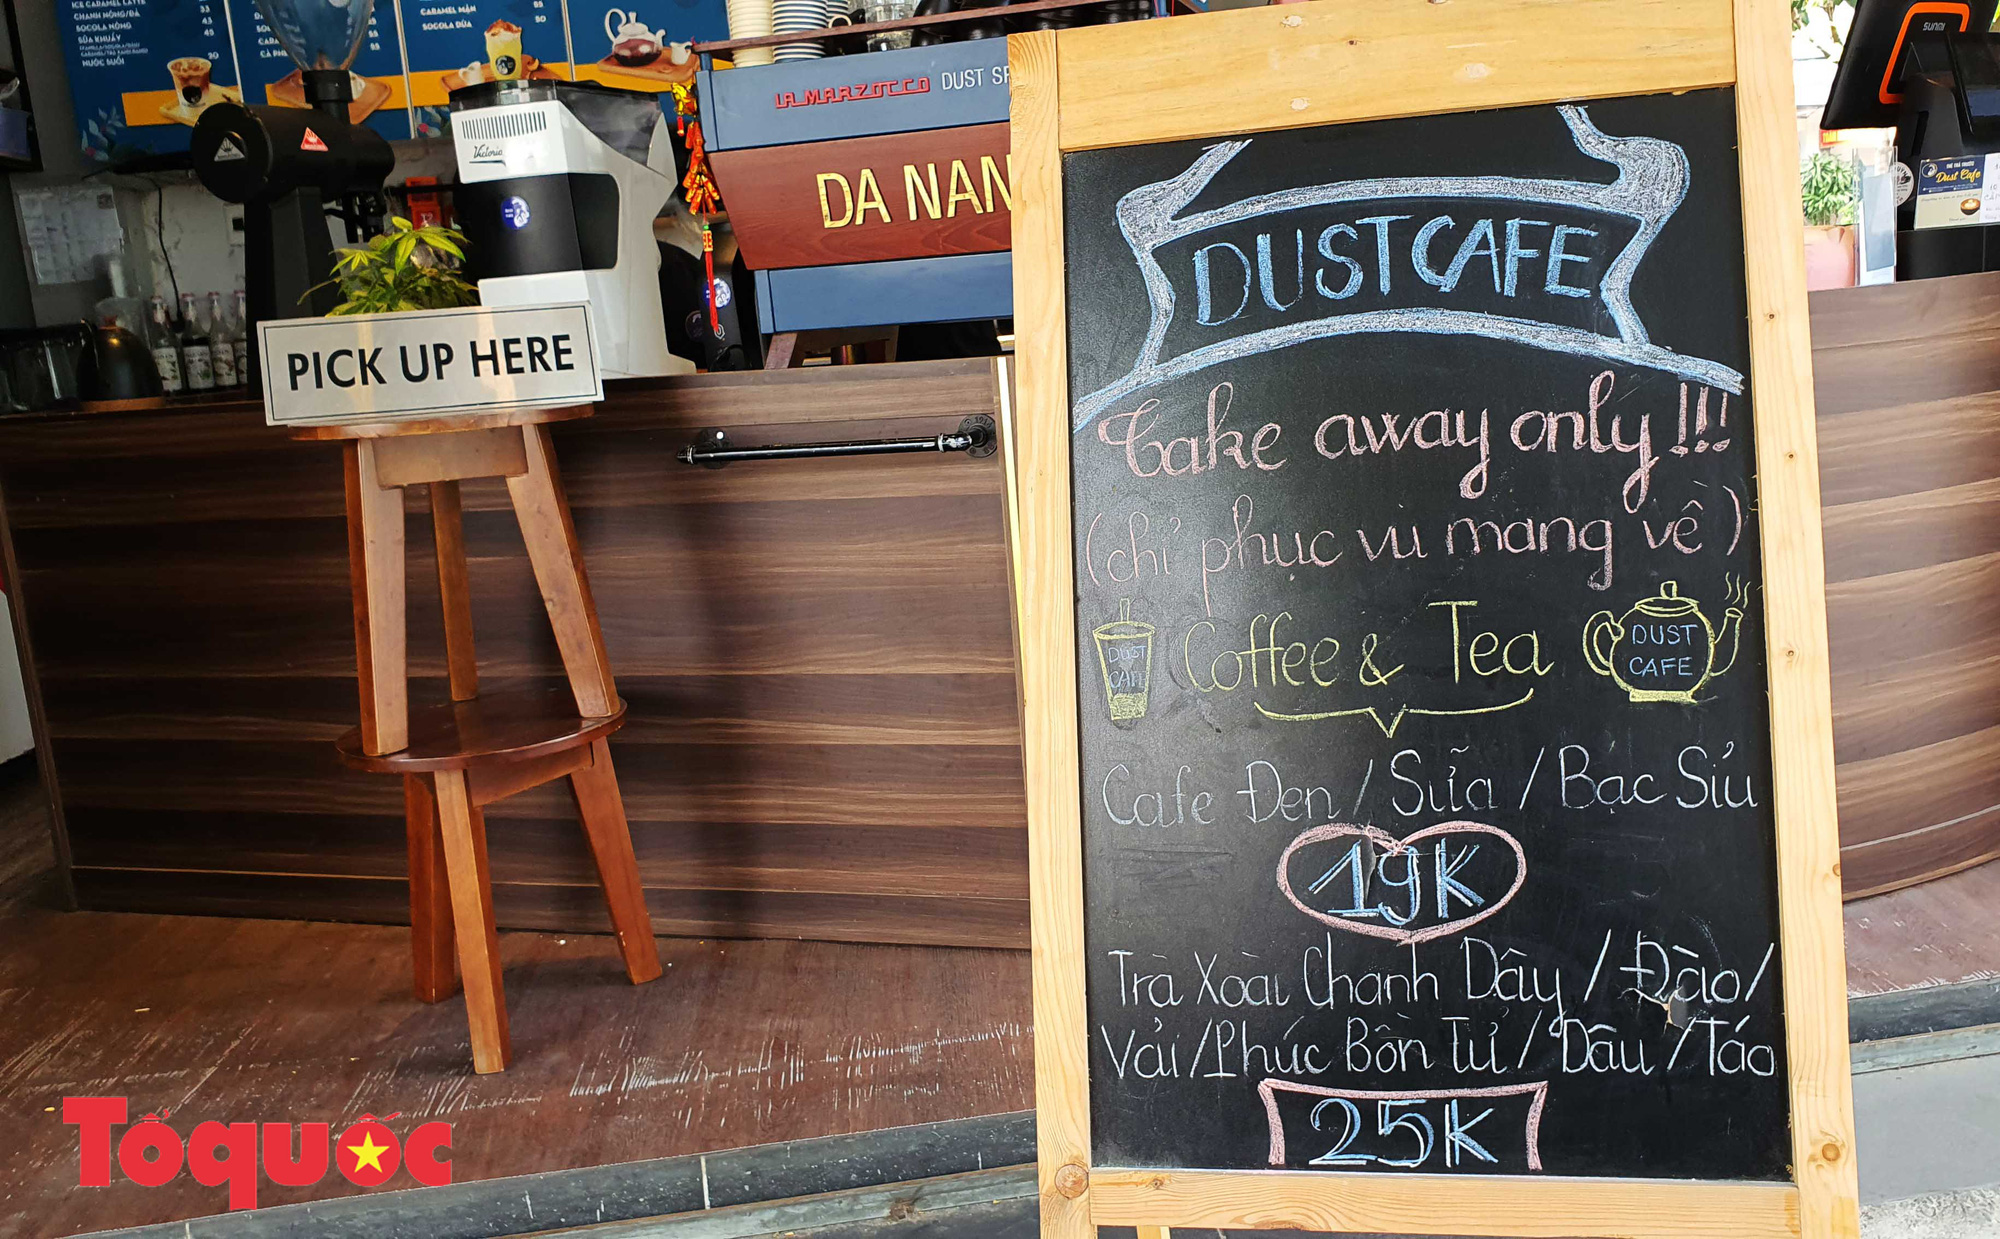 ICE CARAMEL LATTE
CHANH NÓNG/ĐÁ 33
SOCOLA NÓNG 49
SỮA KHUẤY 45
NƯỚC SUỐI 20
CARAMEL MẶN 55
SOCOLA DỪA 50
LA MARZOCCO DUST
DA NAN
Victoria
PICK UP HERE
SUNMI
Dust Cafe
DUST CAFE
Take away only!!!
(chỉ phục vụ mang về)
DUST
CAFE
Coffee & Tea
DUST
CAFE
Cafe Đen / Sữa / Bạc Sỉu
19K
Trà Xoài Chanh Dây / Đào /
Vải / Phúc Bồn Tử / Dâu / Táo
25K
Tổ quốc